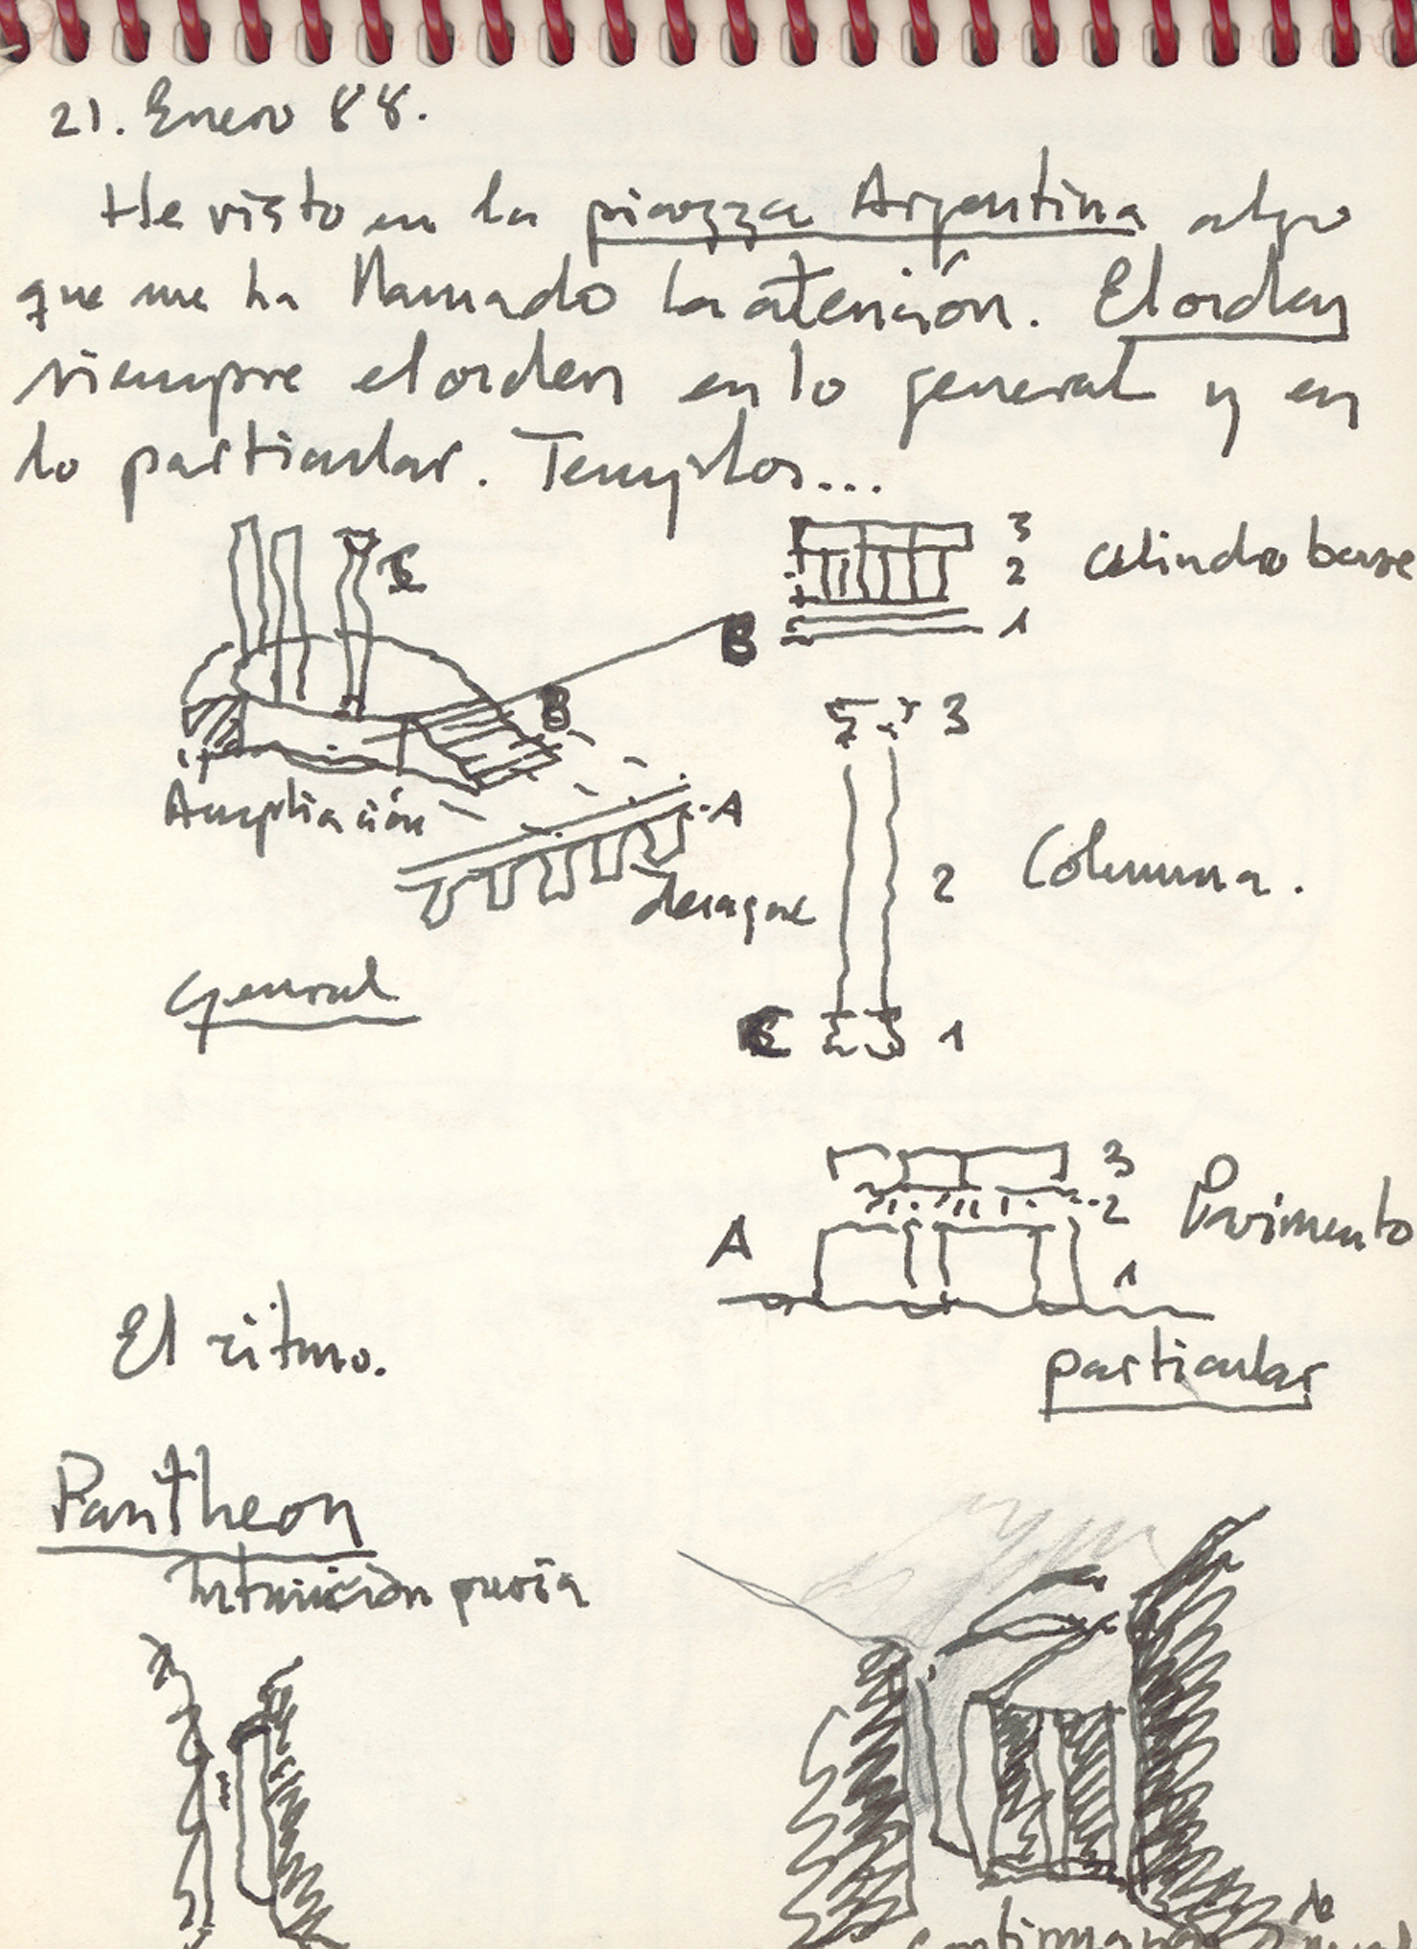 21. Enero 88.
He visto en la piazza Argentina algo
que me ha llamado la atención. El orden
siempre el orden en lo general y en
lo particular. Templos...
C
3
2
1
cilindro base
B
B
Ampliación
A
desague
General
3
2
1
Columna.
C
3
2
1
Pavimento
A
particular
El ritmo.
Pantheon
Intuición previa